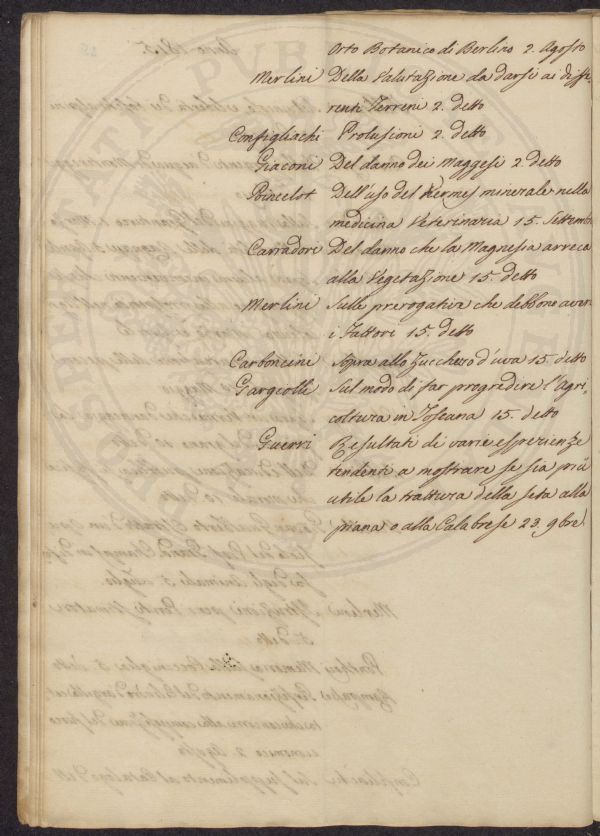 Orto Botanico di Berlino 2. Agosto
Merlini Della Valutazione da darsi ai diffe-
renti Terreni 2. detto
Configliachi Prolusioni 2. detto
Giaconi Del danno dei Maggesi 2 detto
Poincelot Dell'uso del Kermes minerale nella
medicina Veterinaria 15. Settembre
Carradori Del danno che la Magnesia arreca
alla Vegetazione 15. detto
Merlini Sulle prerogative che debbono avere
i Fattori 15. detto
Carboncini Sopra allo Zucchero d'uva 15. detto
Gargiolli Sul modo di far progredire l'Agri-
coltura in Toscana 15. detto
Guerri Resultati di varie esperienze
tendenti a mostrare se sia più
utile la trattura della seta alla
piana o alla Calabrese 23. 9bre